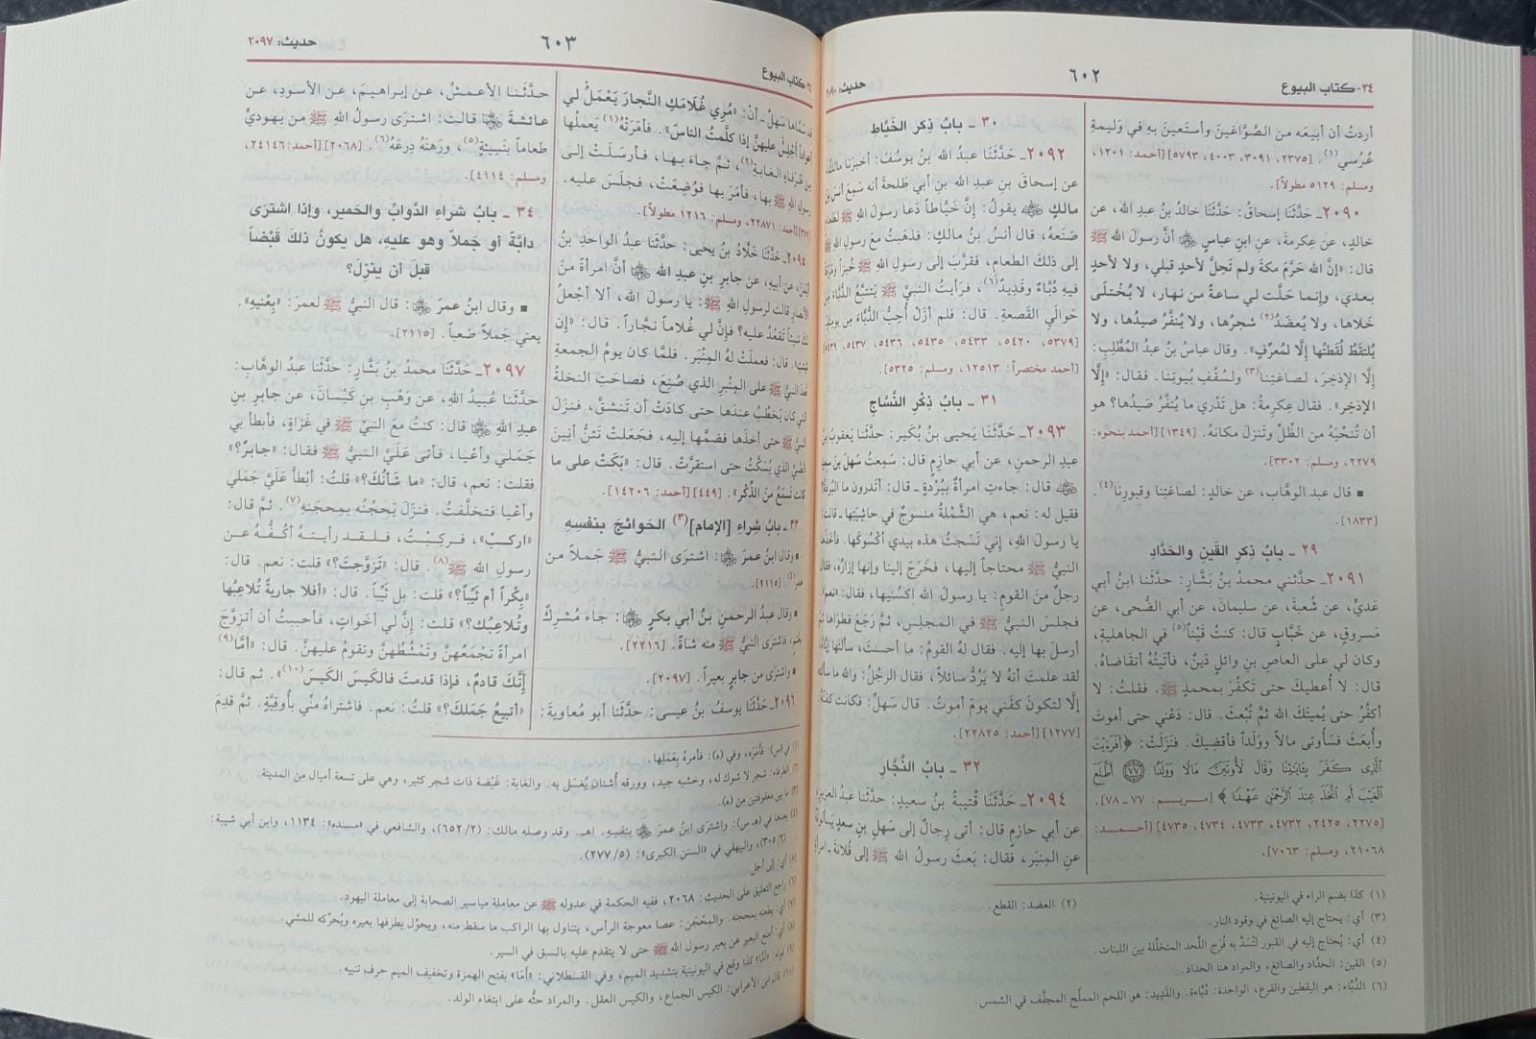 ٣٤- كتاب البيوع
٦٠٢
حديث:
أردتُ أن أبيعَه من الصَّوَّاغينَ وأستَعينَ بهِ في وَليمةِ
عُرُسي(١). [٢٣٧٥، ٣٠٩١، ٤٠٠٣، ٥٧٩٣] [أحمد: ١٢٠١،
ومسلم: ٥١٢٩ مطولاً].
٢٠٩٠ـ حَدَّثَنَا إسحاقُ: حَدَّثَنَا خالدُ بنُ عبدِ الله، عن
خالدٍ، عن عِكرمةَ، عنِ ابنِ عباسٍ ﷺ أنَّ رسولَ الله ﷺ
قال: «إنَّ الله حَرَّمَ مكةَ ولم تَحِلَّ لأحدٍ قبلي، ولا لأحدٍ
بعدي، وإنما حَلَّت لي ساعةً من نهار، لا يُختلَى
خَلاها، ولا يُعضَدُ(٢) شجرُها، ولا يُنفَّرُ صيدُها، ولا
يُلتقَطُ لُقَطتُها إلَّا لمُعرِّفٍ». وقال عباسُ بنُ عبدُ المُطَّلِبِ:
إلَّا الإذخِرَ، لصاغتِنا(٣) ولسُقُفِ بُيوتِنا. فقال: «إلَّا
الإذخِر». فقال عِكرِمةُ: هل تَدْري ما يُنفَّرُ صَيدُها؟ هو
أن تُنَحِّيَهُ من الظِّلِّ وتَنزلَ مكانَهُ. [١٣٤٩] [أحمد بنحوه:
٢٢٧٩، ومسلم: ٣٣٠٢].
▪ قال عبد الوهَّاب، عن خالدٍ: لصاغتِنا وقبورِنا(٤).
[١٨٣٣].
٢٩ ـ بابُ ذِكرِ القَينِ والحَدَّادِ
٢٠٩١ـ حَدَّثني محمدُ بنُ بَشَّارٍ: حَدَّثَنَا ابنُ أبي
عَديٍّ، عن شُعبةَ، عن سليمانَ، عن أبي الضُّحى، عن
مَسروقٍ، عن خَبَّابٍ قال: كنتُ قَيْناً(٥) في الجاهليةِ،
وكان لي على العاصِ بنِ وائلٍ دَينٌ، فأتَيتُهُ أتقاضاهُ.
قال: لا أُعطيكَ حتى تَكفُرَ بمحمدٍ ﷺ. فقلتُ: لا
أكفُرُ حتى يُميتَكَ الله ثمَّ تُبْعثَ. قال: دَعْني حتى أموتَ
وأُبعَثَ فسَأُوتى مالاً ووَلَداً فأقضِيكَ. فنَزَلَتْ: ﴿أَفَرَءَيْتَ
ٱلَّذِى كَفَرَ بِـَٔايَـٰتِنَا وَقَالَ لَأُوتَيَنَّ مَالًا وَوَلَدًا ﴿٧٧﴾ أَطَّلَعَ
ٱلْغَيْبَ أَمِ ٱتَّخَذَ عِندَ ٱلرَّحْمَٰنِ عَهْدًا﴾ [مريم: ٧٧ ـ ٧٨].
[٢٢٧٥، ٢٤٢٥، ٤٧٣٢، ٤٧٣٣، ٤٧٣٤، ٤٧٣٥] [أحمد:
٢١٠٦٨، ومسلم: ٧٠٦٣].
٣٠ ـ بابُ ذِكرِ الخَيَّاطِ
٢٠٩٢ـ حَدَّثَنَا عبدُ الله بنُ يوسُفَ: أخبرَنا مالكٌ
عن إسحاقَ بنِ عبدِ الله بنِ أبي طَلحةَ أنه سَمِعَ أنسَ بنَ
مالكٍ ﷺ يقولُ: إنَّ خَيَّاطاً دَعا رسولَ الله ﷺ لطعامٍ
صَنَعهُ، قال أنسُ بنُ مالكٍ: فذَهَبتُ معَ رسولِ الله ﷺ
إلى ذلكَ الطعامِ، فقرَّبَ إلى رسولِ الله ﷺ خُبزاً ومَرَقاً
فيهِ دُبَّاءٌ وقَديدٌ(٦)، فرَأيتُ النبيَّ ﷺ يَتتبَّعُ الدُّبَّاءَ من
حَوالَي القَصعةِ. قال: فلم أزَلْ أُحِبُّ الدُّبَّاءَ من يومئذٍ.
[٥٣٧٩، ٥٤٢٠، ٥٤٣٣، ٥٤٣٥، ٥٤٣٦، ٥٤٣٧، ٥٤٣٩]
[أحمد مختصراً: ١٢٥١٣، ومسلم: ٥٣٢٥].
٣١ ـ بابُ ذِكْرِ النَّسَّاجِ
٢٠٩٣ـ حَدَّثَنَا يَحيى بنُ بُكَيرٍ: حَدَّثَنا يَعقوبُ بنُ
عبدِ الرحمنِ، عن أبي حازِمٍ قال: سَمِعتُ سَهلَ بنَ سعدٍ
ﷺ قال: جاءتِ امرأةٌ ببُرْدةٍ ـ قال: أتدرون ما البُردةُ؟
فقيل له: نعم، هي الشَّمْلةُ منسوجٌ في حاشيتِها ـ قالت:
يا رسولَ الله، إني نَسَجتُ هذه بيدي أكْسُوكَها. فأخذَها
النبيُّ ﷺ محتاجاً إليها، فخَرَجَ إلينا وإنها إزارُهُ، فقال
رجلٌ منَ القومِ: يا رسولَ الله اكسُنيها، فقال: «نعم».
فجلسَ النبيُّ ﷺ في المجلِسِ، ثمَّ رَجَعَ فطَوَاها ثمَّ
أرسلَ بها إليه. فقال لهُ القومُ: ما أحسنتَ، سألتَها إيَّاهُ،
لقد علمتَ أنهُ لا يَرُدُّ سائلاً، فقال الرجُلُ: والله ما سألتُه
إلَّا لتكونَ كَفَني يومَ أموتُ. قال سَهلٌ: فكانت كفَنَهُ.
[١٢٧٧] [أحمد: ٢٢٨٢٥].
٣٢ ـ بابُ النَّجَّارِ
٢٠٩٤ـ حَدَّثَنَا قُتيبةُ بنُ سعيدٍ: حَدَّثَنا عبدُ العزيزِ
عن أبي حازمٍ قال: أتى رجالٌ إلى سَهلِ بنِ سعدٍ يَسألونَهُ
عنِ المِنبَرِ، فقال: بَعثَ رسولُ الله ﷺ إلى فُلانةَ ـ امرأةٍ
(١) كذا بضم الراء في اليونينية.
(٢) العضد: القطع.
(٣) أي: يحتاج إليه الصائغ في وقود النار.
(٤) أي: يُحتاج إليه في القبور لتُسَدَّ به فُرَج اللَّحد المتخلِّلة بين اللَّبنات.
(٥) القين: الحدَّاد والصائغ، والمراد هنا الحداد.
(٦) الدُّبَّاء: هو اليقطين والقرع، الواحدة: دُبَّاءة. والقَدِيد: هو اللحم المملَّح المجفَّف في الشمس.
كتاب البيوع
٦٠٣
حديث: ٢٠٩٧
قد سَمَّاها سَهلٌ ـ أنْ: «مُرِي غُلامَكِ النَّجارَ يَعْمَلُ لي
أعواداً أجْلِسُ عليهنَّ إذا كَلَّمتُ الناسَ». فأمَرَتْهُ(١) يَعمَلُها
من طَرْفاءِ الغابةِ(٢)، ثمَّ جاءَ بها، فأرسَلَتْ إلى
رسولِ الله ﷺ بها، فأمَرَ بها فوُضِعَتْ، فجلَسَ عليه.
[٣٧٧] [أحمد: ٢٢٨٧١، ومسلم: ١٢١٦ مطولاً].
٢٠٩٥ـ حَدَّثَنَا خَلَّادُ بنُ يحيى: حَدَّثَنا عبدُ الواحدِ بنُ
أيمنَ، عن أبيهِ، عن جابرِ بنِ عبدِ الله ﷺ أنَّ امرأةً منَ
الأنصارِ قالت لرسولِ الله ﷺ: يا رسولَ الله، ألا أجْعلُ
لكَ شيئاً تَقعُدُ عليه؟ فإنَّ لي غُلاماً نجَّاراً. قال: «إن
شِئتِ». قال: فعمِلَتْ لهُ المِنْبَر. فلمَّا كان يومُ الجمعةِ
قَعَدَ النبيُّ ﷺ على المِنْبرِ الذي صُنِعَ، فصاحَتِ النخلةُ
التي كان يَخطُبُ عندَها حتى كادَتْ أن تَنشقَّ، فنزَلَ
النبيُّ ﷺ حتى أخذَها فضمَّها إليه، فجَعَلتْ تَئنُّ أنينَ
الصَّبيِّ الذي يُسَكَّتُ حتى استقرَّتْ. قال: «بَكَتْ على ما
كانت تَسمَعُ منَ الذِّكْر». [٤٤٩] [أحمد: ١٤٢٠٦].
٣٣ ـ بابُ شراءِ [الإمام](٣) الحَوائجَ بنفسِهِ
▪ وقال ابنُ عمرَ ﷺ: اشترَى النبيُّ ﷺ جَملاً من
عمرَ(٤). [٢١١٥].
▪ وقال عبدُ الرحمنِ بنُ أبي بكرٍ ﷺ: جاءَ مُشرِكٌ
بغنمٍ، فاشترى النبيُّ ﷺ منه شاةً. [٢٢١٦].
▪ واشترى من جابرٍ بعيراً. [٢٠٩٧].
٢٠٩٦ـ حَدَّثَنَا يوسفُ بنُ عيسى: حَدَّثَنا أبو مُعاويةَ:
حَدَّثَنَا الأعمشُ، عن إبراهيمَ، عن الأسودِ، عن
عائشةَ ﷺ قالت: اشترَى رسولُ الله ﷺ من يهوديٍّ
طعاماً بنَسيئةٍ(٥)، ورَهَنَهُ دِرعَهُ(٦). [٢٠٦٨] [أحمد: ٢٤١٤٦،
ومسلم: ٤١١٤].
٣٤ ـ بابُ شراءِ الدَّوابِّ والحَميرِ، وإذا اشترَى
دابَّةً أو جَملاً وهو عليهِ، هل يكونُ ذلكَ قَبْضاً
قبلَ أن يَنزِلَ؟
▪ وقال ابنُ عمرَ ﷺ: قال النبيُّ ﷺ لعمرَ: «بِعْنيهِ».
يعني جَملاً صَعباً. [٢١١٥].
٢٠٩٧ـ حَدَّثَنَا محمدُ بنُ بَشَّارٍ: حدَّثَنا عبدُ الوهَّابِ:
حَدَّثَنا عُبيدُ اللهِ، عن وَهْبِ بنِ كَيْسانَ، عن جابرِ بنِ
عبدِ اللهِ ﷺ قال: كنتُ معَ النبيِّ ﷺ في غَزَاةٍ، فأبطأ بي
جَمَلي وأعْيا، فأتى عَلَيَّ النبيُّ ﷺ فقال: «جابرٌ؟»
فقلتُ: نعم، قال: «ما شَأنُكَ؟» قلتُ: أبْطأ عَلَيَّ جَمَلي
وأعْيا فتخلَّفتُ. فنزَلَ يَحجُنُهُ بمِحجَنِهِ(٧). ثمَّ قال:
«اركبْ»، فركِبْتُ، فلقد رأيتهُ أكُفُّهُ عن
رسولِ الله ﷺ(٨). قال: «تَزوَّجتَ؟» قلت: نعم. قال:
«بِكْراً أم ثَيِّباً؟» قلت: بل ثَيِّباً. قال: «أفلا جاريةً تُلاعِبُها
وتُلاعِبُك؟» قلتُ: إنَّ لي أخَواتٍ، فأحبَبتُ أن أتزوَّجَ
امرأةً تَجْمَعُهنَّ وتَمْشُطُهنَّ وتقومُ عليهنَّ. قال: «أمَّا(٩)
إنَّكَ قادمٌ، فإذا قدمتَ فالكَيسَ الكَيسَ(١٠)». ثم قال:
«أتَبيعُ جَملَكَ؟» قلتُ: نعم. فاشتراهُ منِّي بأُوقيَّةٍ. ثمَّ قدِمَ
(١) في (س): فأمَره، وفي (ه): فأمَرهُ بعَمَلِها.
(٢) الطرفاء: شجر لا شوك له، وخشبه جيد، وورقه أُشنان يُغسَل به. والغابة: غَيْضة ذات شجر كثير، وهي على تسعة أميال من المدينة.
(٣) ما بين معقوفتين من (ه).
(٤) بعدها في (ه س): واشترى ابنُ عمرَ ﷺ بنفسِهِ. اهـ. وقد وصله مالك: (٢/ ٦٥٢)، والشافعي في «مسنده»: ١١٣٤، وابن أبي شيبة:
(٢/ ٣٠٥)، والبيهقي في «السنن الكبرى»: (٥/ ٢٧٧).
(٥) أي: إلى أجل.
(٦) راجع التعليق على الحديث: ٢٠٦٨، ففيه الحكمة في عدوله ﷺ عن معاملة مياسير الصحابة إلى معاملة اليهود.
(٧) أي: يطعنه بمحجنه. والمِحْجَن: عصا معوجة الرأس، يتناول بها الراكب ما سقط منه، ويحوِّل بطرفها بعيره ويُحرِّكه للمشي.
(٨) أي: أمنع البعير عن بعير رسول الله ﷺ حتى لا يتقدم عليه بالسبق في السير.
(٩) قوله: «أمَّا» كذا وقع في اليونينية بتشديد الميم، وفي القسطلاني: «أمَا» بفتح الهمزة وتخفيف الميم حرف تنبيه.
(١٠) قال ابن الأعرابي: الكيس الجماع، والكيس العقل. والمراد حثُّه على ابتغاء الولد.